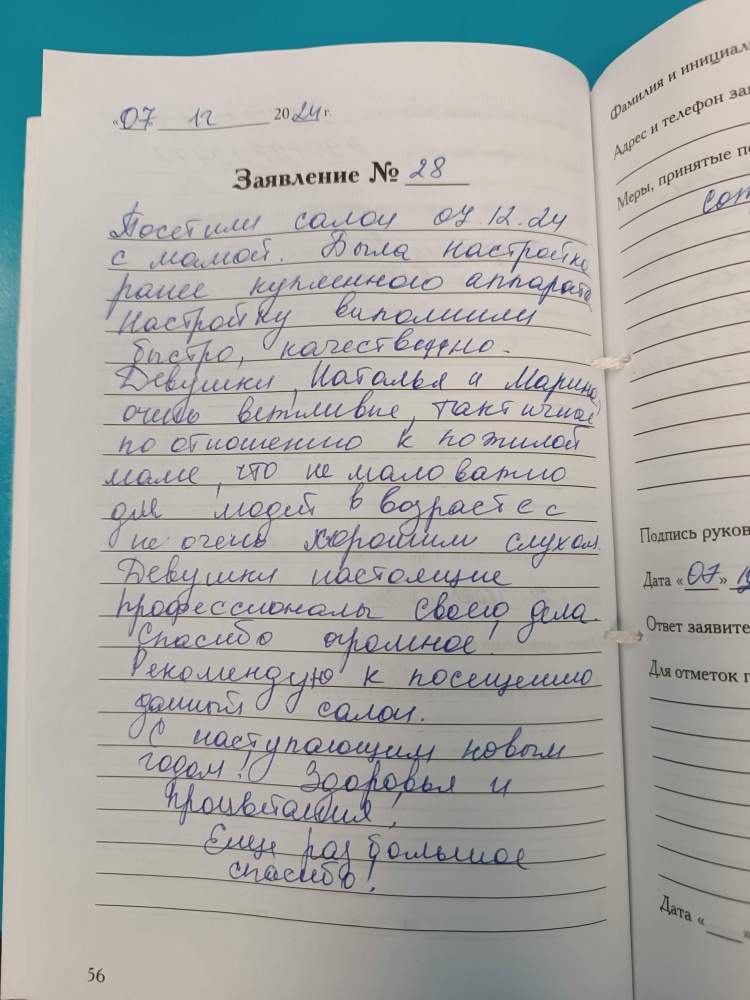 «07» 12 2024 г.
Заявление № 28
Посетили салон 07.12.24
с мамой. Была настройка
ранее купленного аппарата
Настройку выполнили
быстро, качественно.
Девушки, Наталья и Марина,
очень вежливые, тактичные
по отношению к пожилой
маме, что не мало важно
для людей в возрасте с
не очень хорошим слухом.
Девушки настоящие
профессионалы своего дела.
Спасибо огромное!
Рекомендую к посещению
данный салон.
С наступающим новым
годом! Здоровья и
процветания!
Еще раз большое
спасибо!
56
Фамилия и инициал
Адрес и телефон за
Меры, принятые по
Подпись руков
Дата «07» 12
Ответ заявите
Для отметок п
Дата « »